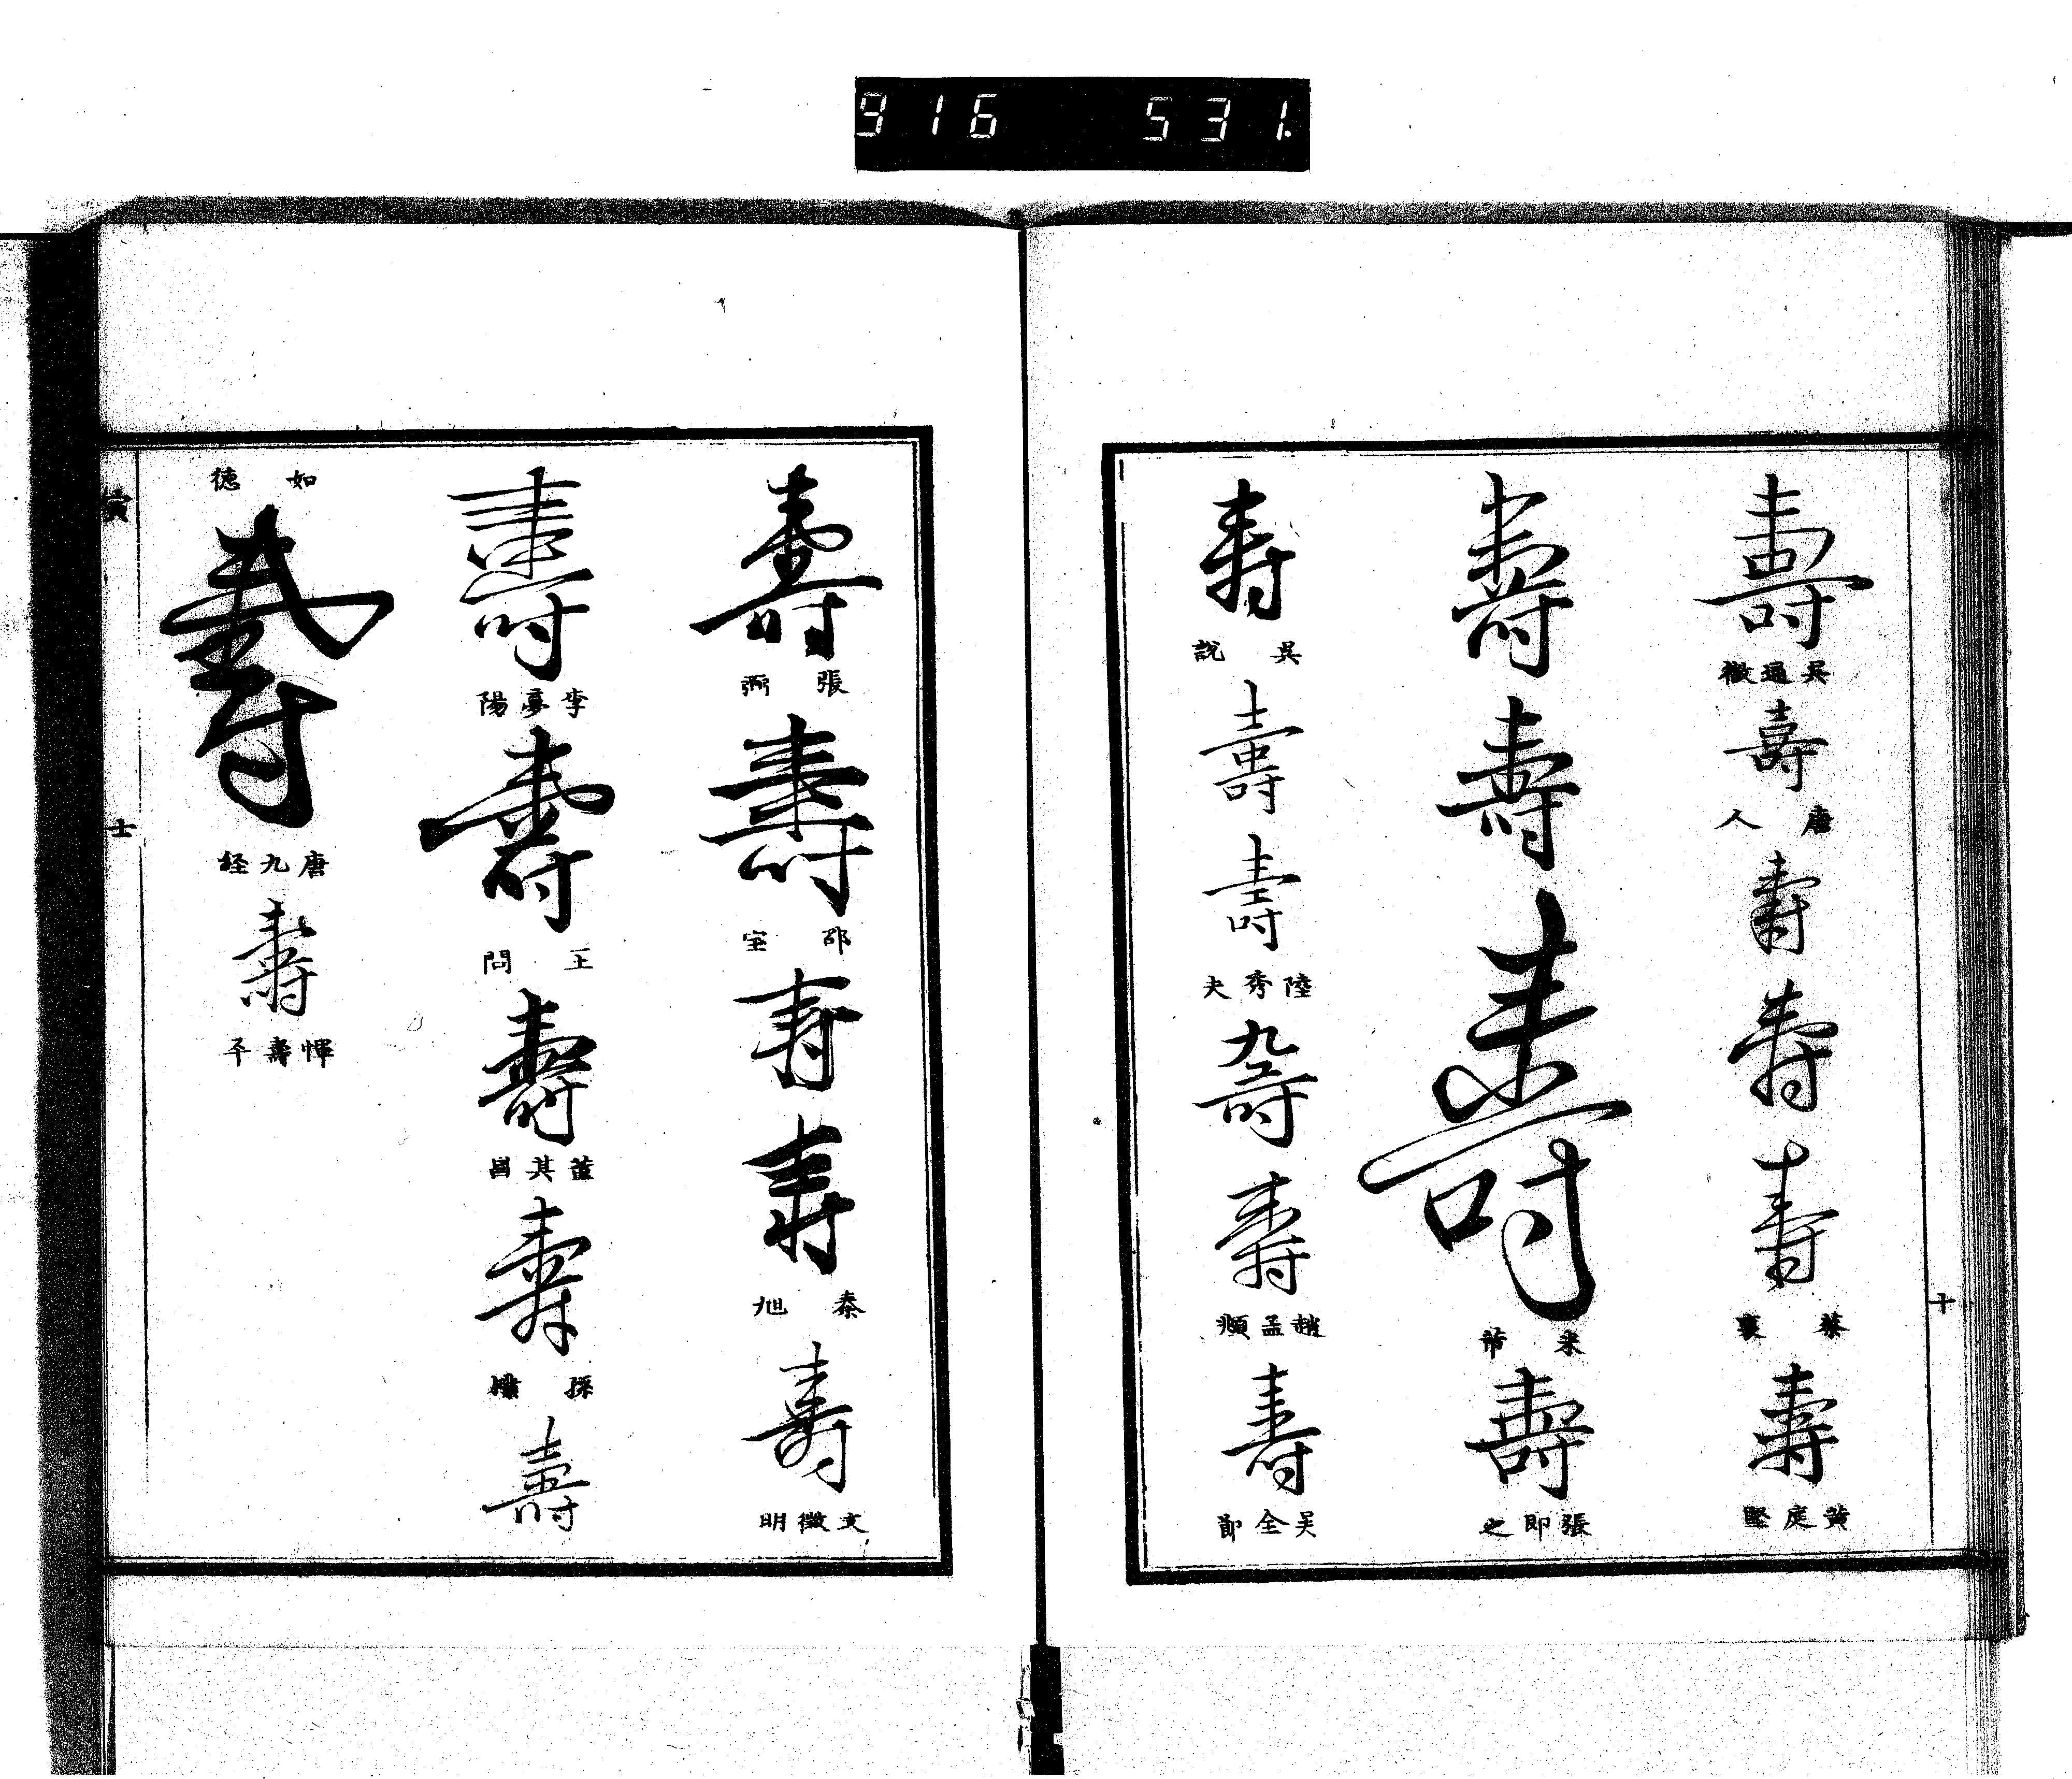 916 531.
壽
吳通微
壽
唐人
壽
壽
壽
蔡襄
壽
黄庭堅
壽
壽
壽
米芾
壽
張即之
壽
吳説
壽
壽
陸秀夫
壽
壽
趙孟頫
壽
吴全節
十
壽
張弼
壽
邵宝
壽
壽
秦旭
壽
文徵明
壽
李夢陽
壽
王問
壽
董其昌
壽
孫
壽
如德
壽
唐九経
壽
惲壽平
寅
士